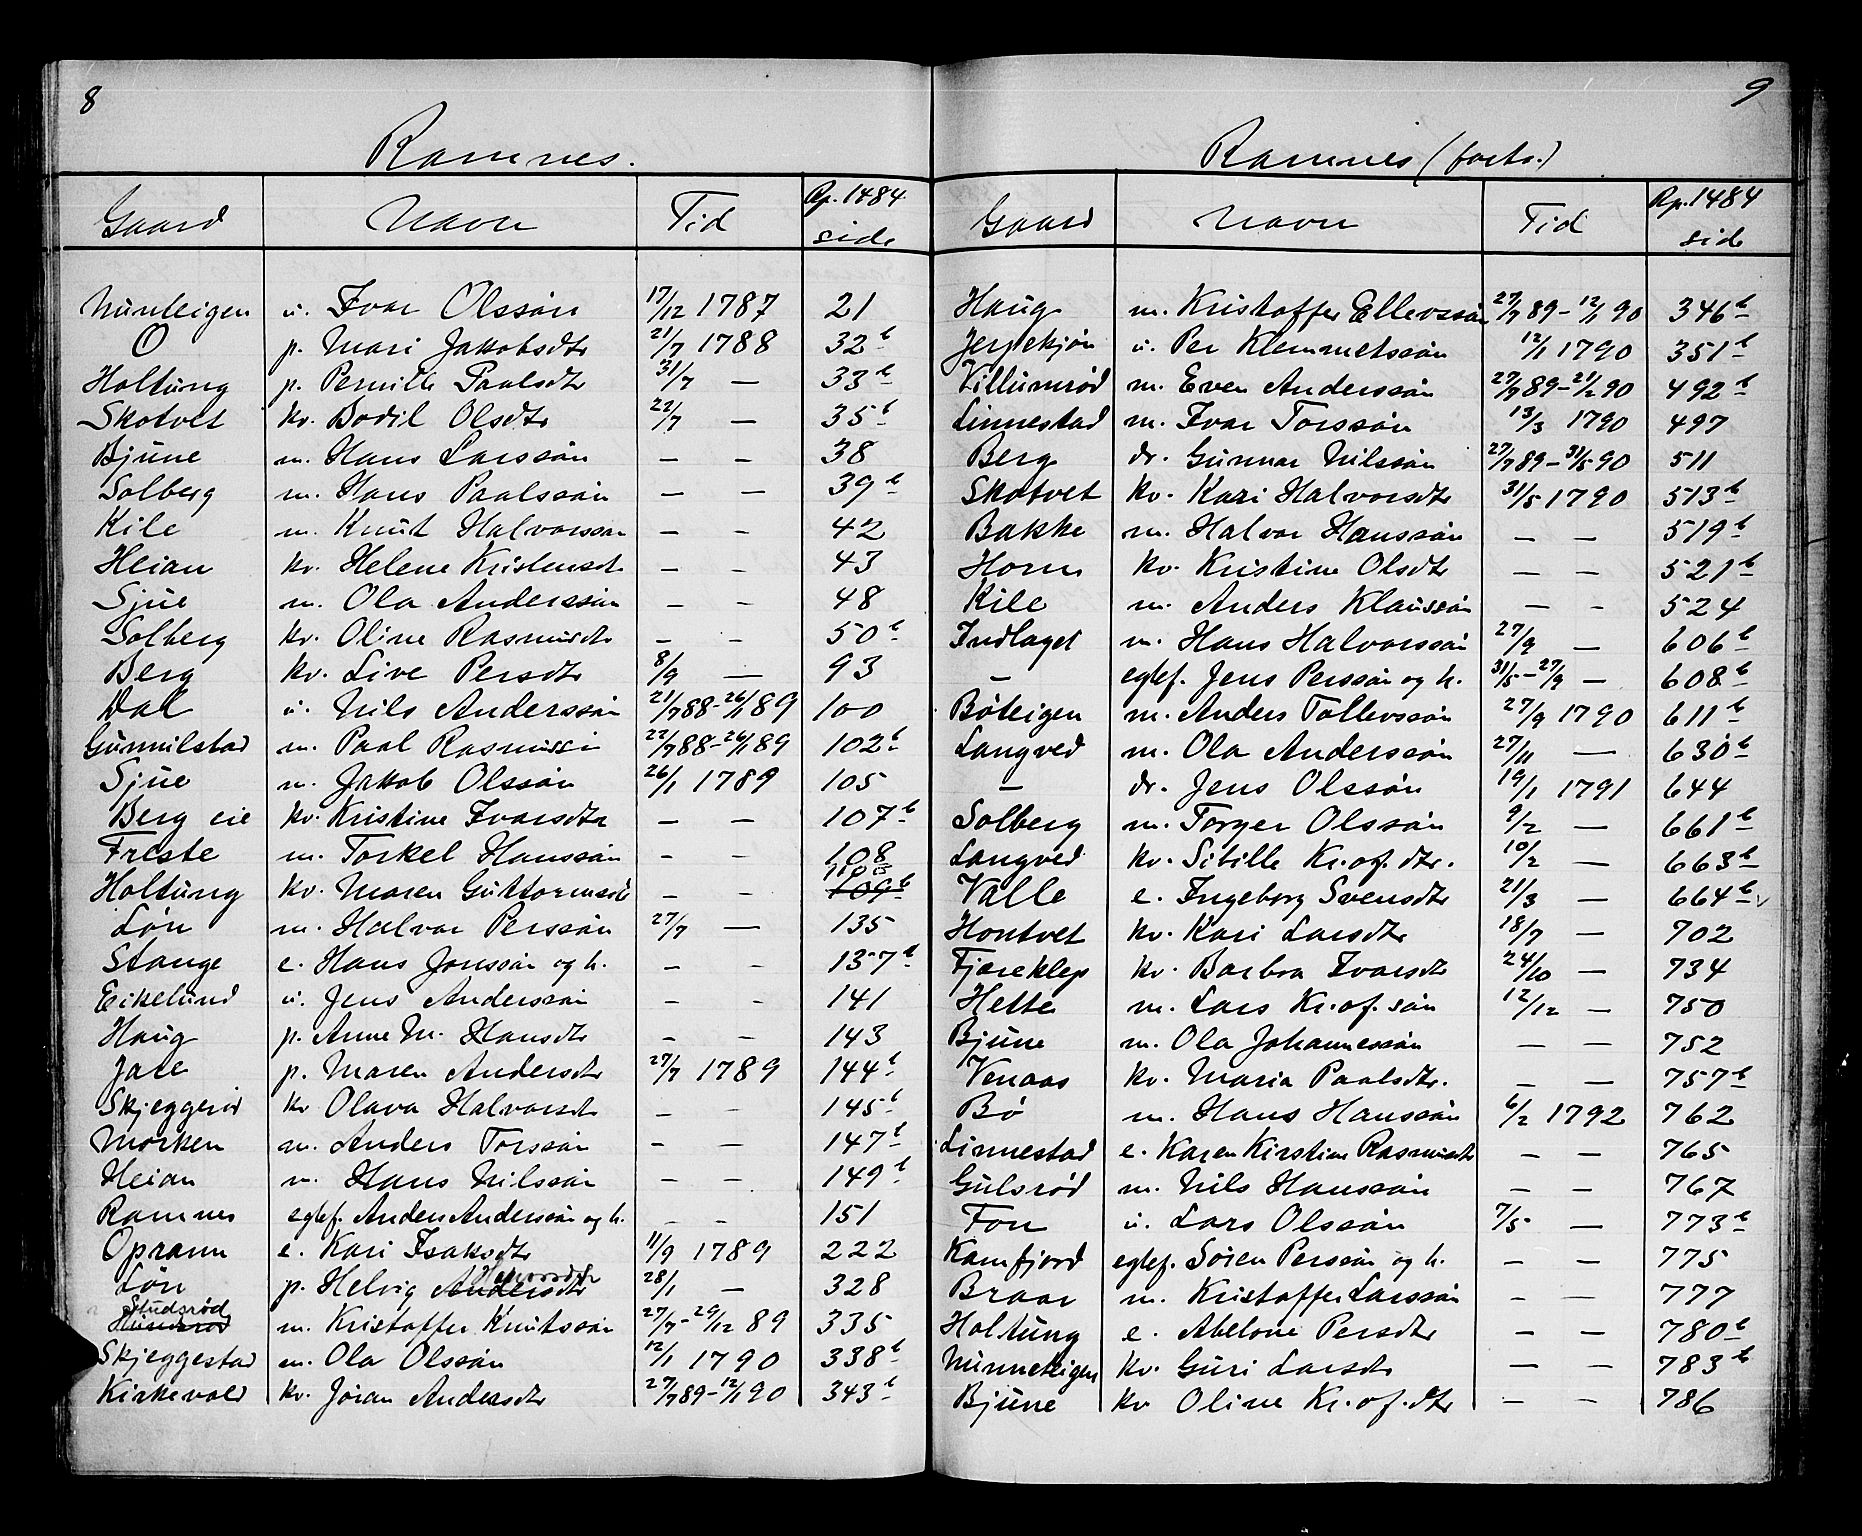 8
Ramnes.
Gaard Navn Tid Rp. 1484 side
Nunleigen u. Ivar Olssøn 17/12 1787 21
O p. Mari Jakobsdtr 21/7 1788 32 b
Holtung p. Pernille Paalsdtr 31/7 — 33 b
Skotvet kv. Bodil Olsdtr 22/7 — 35 b
Bjune m. Hans Larssøn — — 38
Solberg m. Hans Paalssøn — — 39 b
Kile m. Knut Halvorssøn — — 42
Heian kv. Helene Kristensdtr — — 43
Sjue m. Ola Anderssøn — — 48
Solberg kv. Oline Rasmusdtr — — 50 b
Berg kv. Live Persdtr 8/9 — 93
Dal u. Nils Anderssøn 21/7 88–26/1 89 100
Gunnilstad m. Paal Rasmuss. 22/7 88–26/1 89 102 b
Sjue m. Jakob Olssøn 26/1 1789 105
Berg eie kv. Kristine Ivarsdtr — — 107 b
Freste m. Torkel Hanssøn — — 108
Holtung kv. Maren Guttormsdtr — — 1108 109 b
Løn m. Halvor Perssøn 27/7 — 135
Stange e. Hans Jonssøn og h. — — 137 b
Eikelund u. Jens Anderssøn — — 141
Haug p. Anne M. Hansdtr — — 143
Jare p. Maren Andersdtr 27/7 1789 144 b
Skjeggerød kv Olava Halvorsdtr — — 145 b
Morken m. Anders Torssøn — — 147 b
Heian m. Hans Nilssøn — — 149 b
Ramnes egtef. Anders Anderssøn og h. — — 151
Oprann e. Kari Isaksdtr 11/9 1789 222
Løn p. Helvig Andersdtr Halvorsdtr 28/1 — 328
Studsrød Hundsrød m. Kristoffer Knutssøn 27/7–29/12 89 335
Skjeggestad m. Ola Olssøn 12/1 1790 338 b
Kirkevold kv. Jøran Andersdtr 27/7 89–12/1 90 343 b
9
Ramnes (forts.)
Gaard Navn Tid Rp. 1484 side
Haug m. Kristoffer Ellevssøn 27/7 89–12/1 90 346 b
Jerpekjøn u. Per Klemmetssøn 12/1 1790 351 b
Villumrød m. Even Anderssøn 27/7 89–21/2 90 492 b
Linnestad m. Ivar Torssøn 13/3 1790 497
Berg dr. Gunnar Nilssøn 27/7 89–31/5 90 511
Skotvet kv. Kari Halvorsdtr 31/5 1790 513 b
Bakke m. Halvor Hanssøn — — 519 b
Horn kv. Kristine Olsdtr — — 521 b
Kile m. Anders Klaussøn — — 524
Indlaget m. Hans Halvorssøn 27/9 — 606 b
— egtef. Jens Perssøn og h. 31/5–27/9 — 608 b
Bøteigen m. Anders Tollevssøn 27/9 1790 611 b
Langved m. Ola Anderssøn 27/11 — 630 b
— dr. Jens Olssøn 19/1 1791 644
Solberg m. Torger Olssøn 9/2 — 661 b
Langved kv. Sibille Kr.of.dtr. 10/2 — 663 b
Valle e. Ingeborg Svensdtr 21/3 — 664 b
Hontvet kv. Kari Larsdtr 18/7 — 702
Fjæreklep kv. Barbra Ivarsdtr 24/10 — 734
Helte m. Lars Kr.of.søn 12/12 — 750
Bjune m. Ola Johannessøn — — 752
Venaas kv. Maria Paalsdtr. — — 757 b
Bø m. Hans Hanssøn 6/2 1792 762
Linnestad e. Karen Kirstine Rasmusdtr — — 765
Gulsrød m. Nils Hanssøn — — 767
Fon u. Lars Olssøn 7/5 — 773 b
Kamfjord egtef. Søren Perssøn og h. — — 775
Braar m. Kristoffer Larssøn — — 777
Holtung e. Abelone Persdtr — — 780 b
Nunneteigen kv. Guri Larsdtr — — 783 b
Bjune kv Oline Kr.of.dtr — — 786